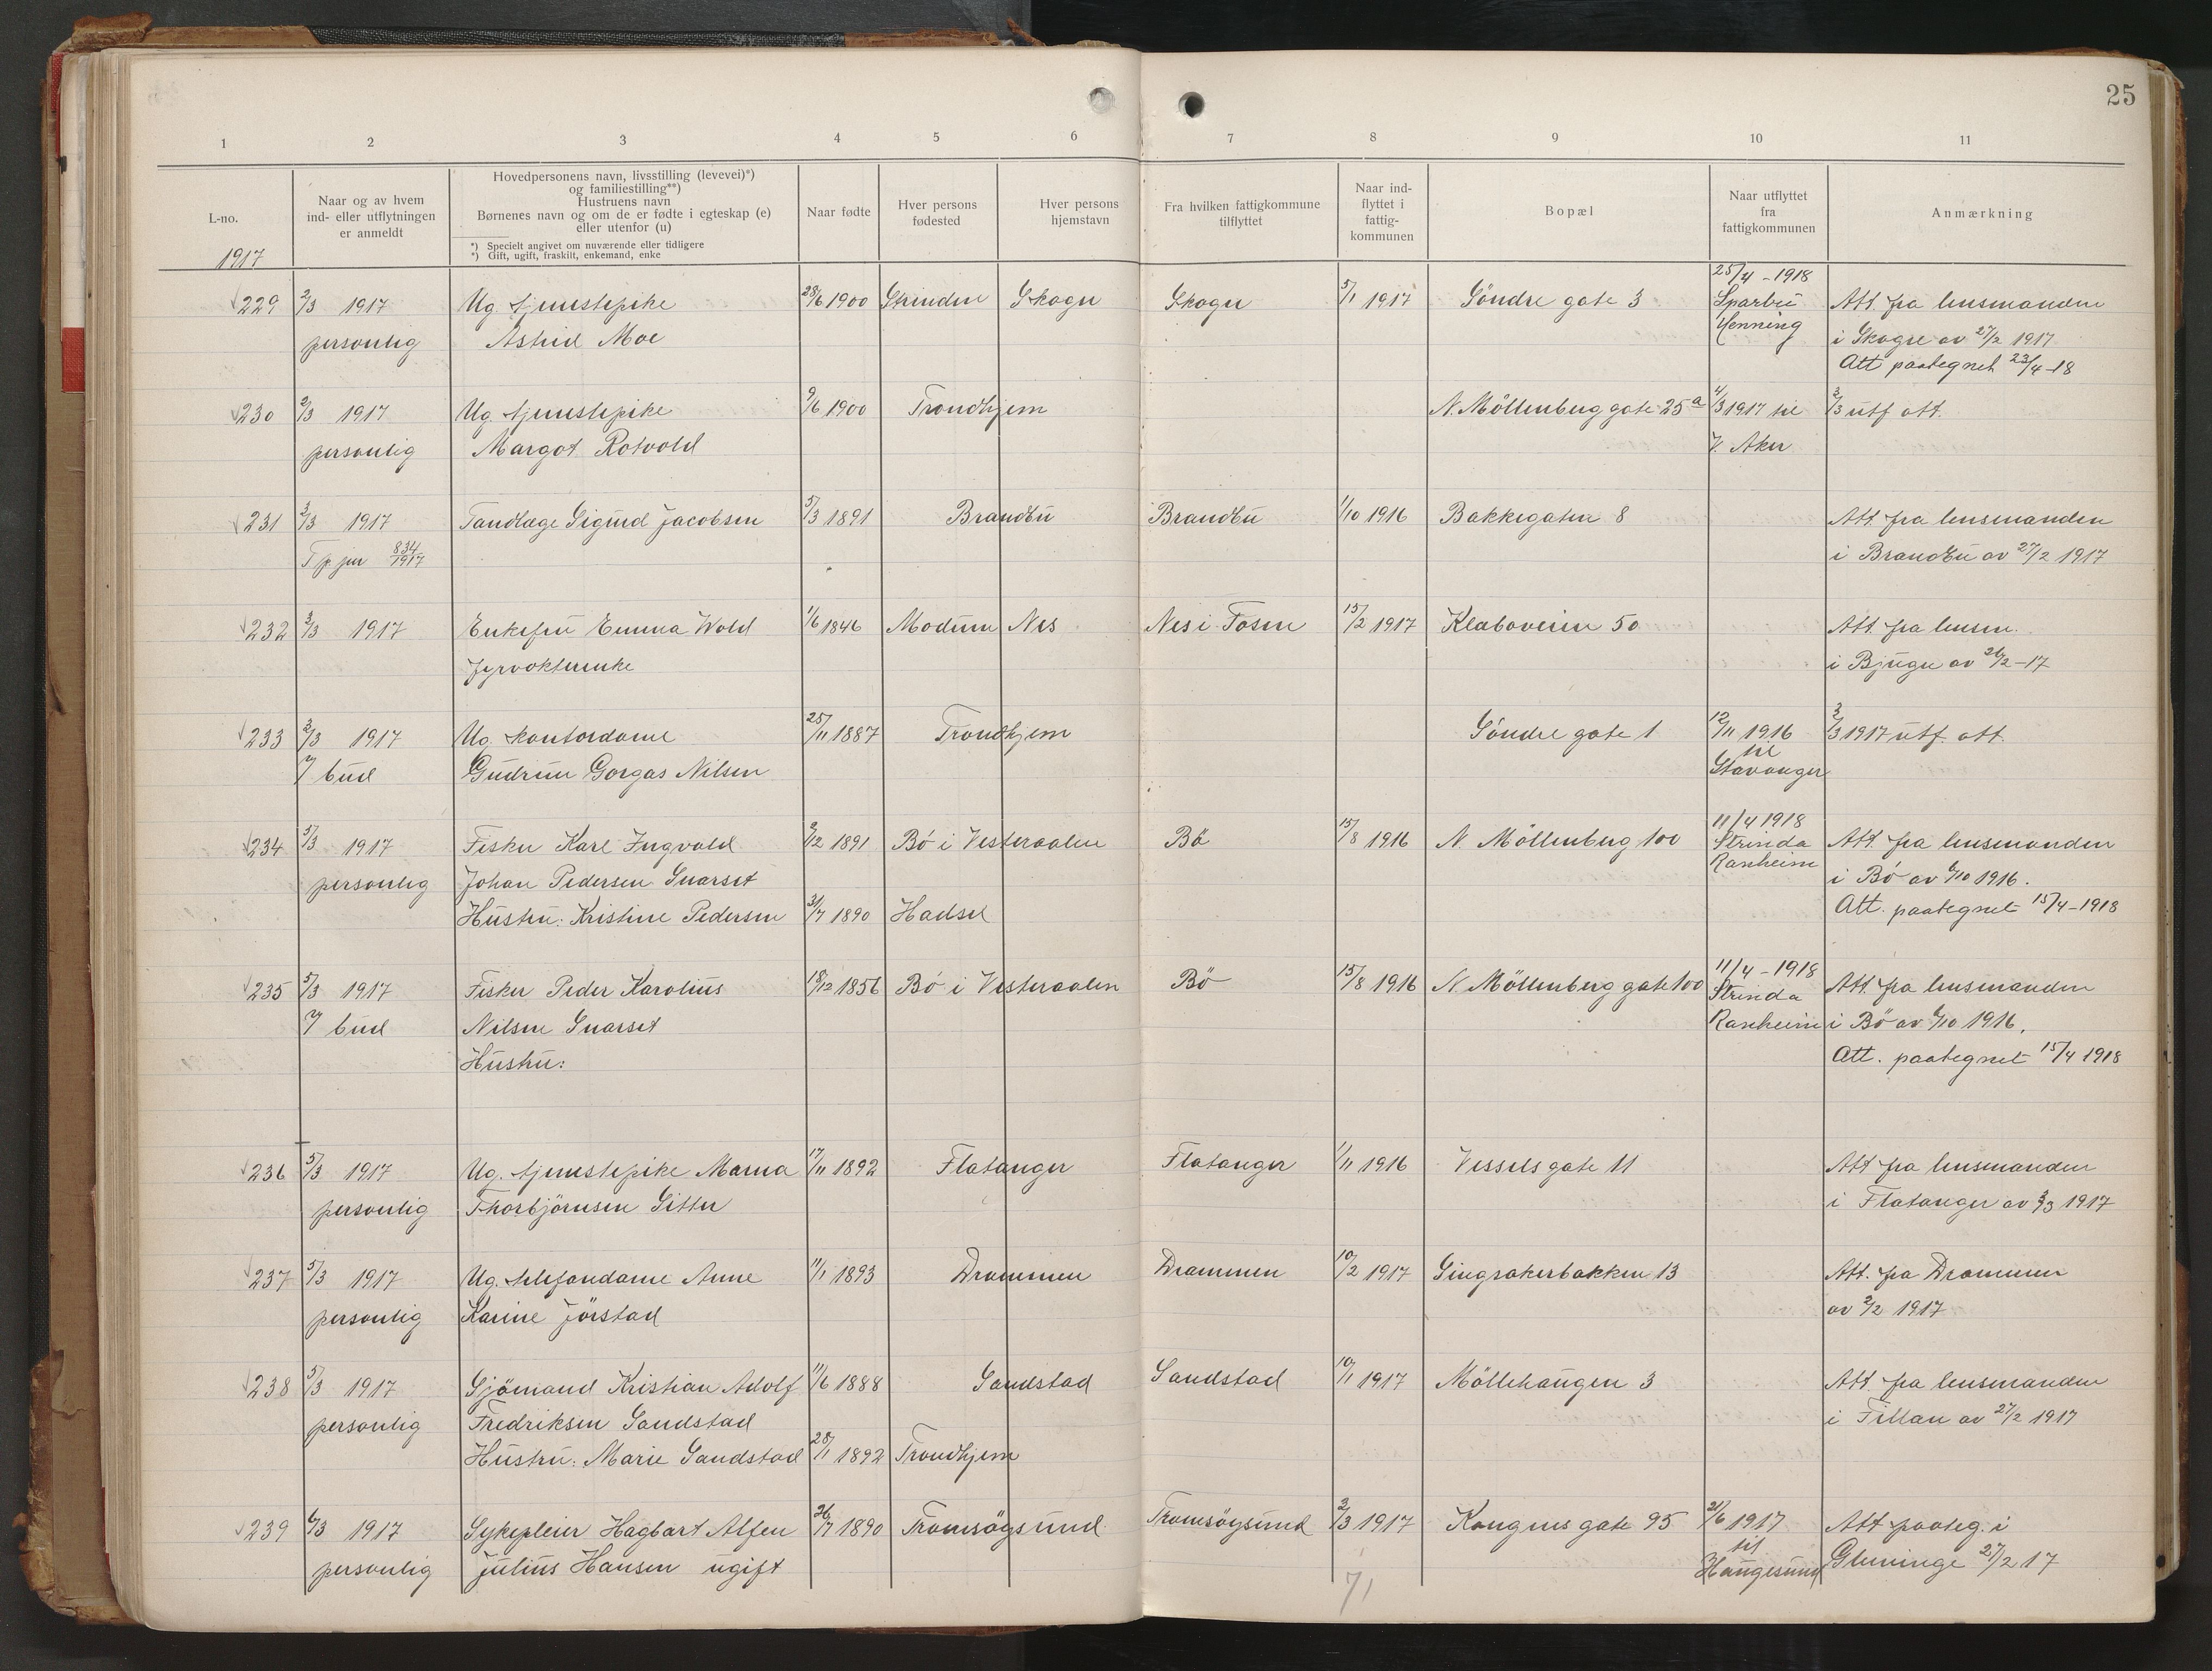 25
1 2 3 4 5 6 7 8 9 10 11
L-no.
1917
Naar og av hvem
ind- eller utflytningen
er anmeldt
Hovedpersonens navn, livsstilling (levevei)*)
og familiestilling**)
Hustruens navn
Børnenes navn og om de er fødte i egteskap (e)
eller utenfor (u)
*) Specielt angivet om nuværende eller tidligere
*) Gift, ugift, fraskilt, enkemand, enke
Naar fødte
Hver persons
fødested
Hver persons
hjemstavn
Fra hvilken fattigkommune
tilflyttet
Naar ind-
flyttet i
fattig-
kommunen
Bopæl
Naar utflyttet
fra
fattigkommunen
Anmærkning
25/4 - 1918
229 2/3 1917 Ug. tjenestepike 28/6 1900 Strinden Skogn Skogn 3/1 1917 Söndre gate 3 Sparbu Att. fra lensmanden
personlig Astrid Moe Henning i Skogn av 27/2 1917
Att paategnet 23/4-18
230 2/3 1917 Ug. tjenestepike 9/6 1900 Trondhjem N. Möllenberg gate 25a 4/3 1917 til 2/3 utf att.
personlig Margot Rotvold V. Aker
231 3/3 1917 Tandlæge Sigurd Jacobsen 5/3 1891 Brandbu Brandbu 1/10 1916 Bakkegaten 8 Att. fra lensmanden
T p jur 834/1917 i Brandbu av 27/2 1917
232 3/3 1917 Enkefru Emma Wold 1/6 1846 Modum Nes Nes i Fosen 15/2 1917 Klæboveien 50 Att. fra lensm.
fyrvokterenke i Bjugn av 26/2-17
233 3/3 1917 Ug. kontordame 25/11 1887 Trondhjem Söndre gate 1 12/11 1916 3/3 1917 utf. att.
v/ bud Gudrun Gorgas Nilsen til
Stavanger
11/4 1918
234 5/3 1917 Fisker Karl Ingvald 9/12 1891 Bö i Vesteraalen Bö 15/8 1916 N. Möllenberg 100 Strinda Att. fra lensmanden
personlig Johan Pedersen Snarset Ranheim i Bö av 6/10 1916.
Hustru: Kristine Pedersen 31/7 1890 Hadsel Att. paategnet 15/4-1918
11/4 - 1918
235 5/3 1917 Fisker Peder Karolius 18/12 1856 Bö i Vesteraalen Bö 15/8 1916 N Möllenberg gate 100 Strinda Att. fra lensmanden
v/ bud Nilsen Snarset Ranheim i Bö av 6/10 1916.
Hustru: Att. paategnet 15/4 1918
236 5/3 1917 Ug. tjenestepike Marna 17/11 1892 Flatanger Flatanger 1/11 1916 Vessels gate 11 Att fra lensmanden
personlig Thorbjörnsen Sitter i Flatanger av 3/3 1917
237 5/3 1917 Ug. telefondame Anne 11/1 1893 Drammen Drammen 10/2 1917 Singsakerbakken 13 Att. fra Drammen
personlig Karine Jörstad av 3/2 1917
238 5/3 1917 Sjömand Kristian Adolf 11/6 1888 Sandstad Sandstad 10/1 1917 Möllehaugen 3 Att. fra lensmanden
personlig Fredriksen Sandstad i Fillan av 27/2 1917
Hustru: Marie Sandstad 28/1 1892 Trondhjem
239 6/3 1917 Sykepleier Hagbart Alfen 26/7 1890 Tromsöysund Tromsöysund 2/3 1917 Kongens gate 95 21/6 1917 Att paateg. i
personlig Julius Hansen ugift til Glemminge 27/2 17
Haugesund